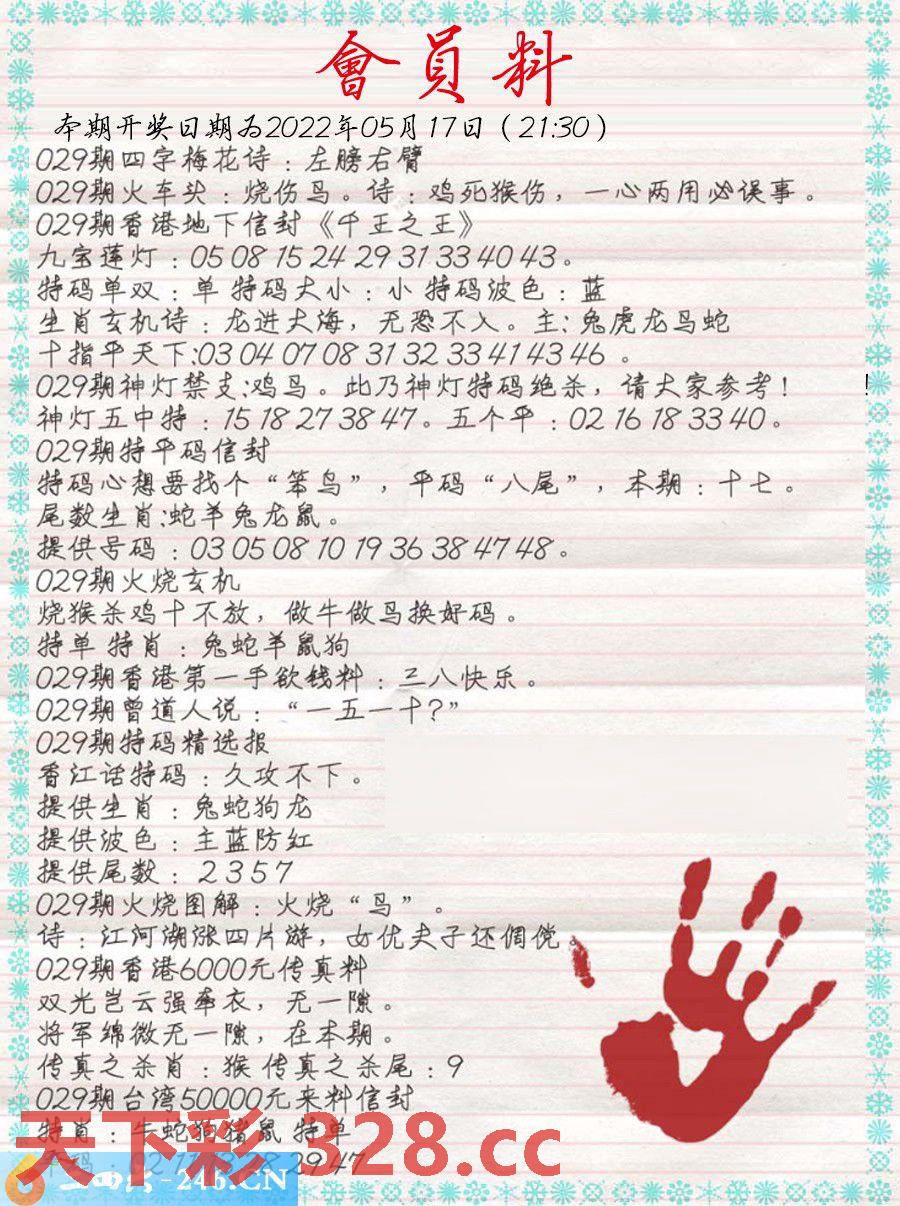 會員料
本期开奖日期为2022年05月17日（21:30）
029期四字梅花诗：左膀右臂
029期火车头：烧伤鸟。诗：鸡死猴伤，一心两用必误事。
029期香港地下信封《千王之王》
九宝莲灯：05 08 15 24 29 31 33 40 43。
特码单双：单 特码大小：小 特码波色：蓝
生肖玄机诗：龙进大海，无恐不入。主:兔虎龙鸟蛇
十指平天下:03 04 07 08 31 32 33 41 43 46 。
029期神灯禁支:鸡鸟。此乃神灯特码绝杀，请大家参考！ !
神灯五中特：15 18 27 38 47。五个平：02 16 18 33 40。
029期特平码信封
特码心想要找个“笨鸟”，平码“八尾”，本期：十七。
尾数生肖:蛇羊兔龙鼠。
提供号码：03 05 08 10 19 36 38 47 48。
029期火烧玄机
烧猴杀鸡十不放，做牛做鸟换好码。
特单 特肖：兔蛇羊鼠狗
029期香港第一手欲钱料：三八快乐。
029期曾道人说：“一五一十?”
029期特码精选报
香江话特码：久攻不下。
提供生肖：兔蛇狗龙
提供波色：主蓝防红
提供尾数：2 3 5 7
029期火烧图解：火烧“鸟”。
诗：江河湖涨四片游，女优夫子还倜傥。
029期香港6000元传真料
双光岂云强牵衣，无一隙。
将军绵微无一隙，在本期。
传真之杀肖：猴 传真之杀尾：9
029期台湾50000元来料信封
特肖：牛蛇狗猪鼠 特单
29 47
天下彩 1328.cc
-246.CN